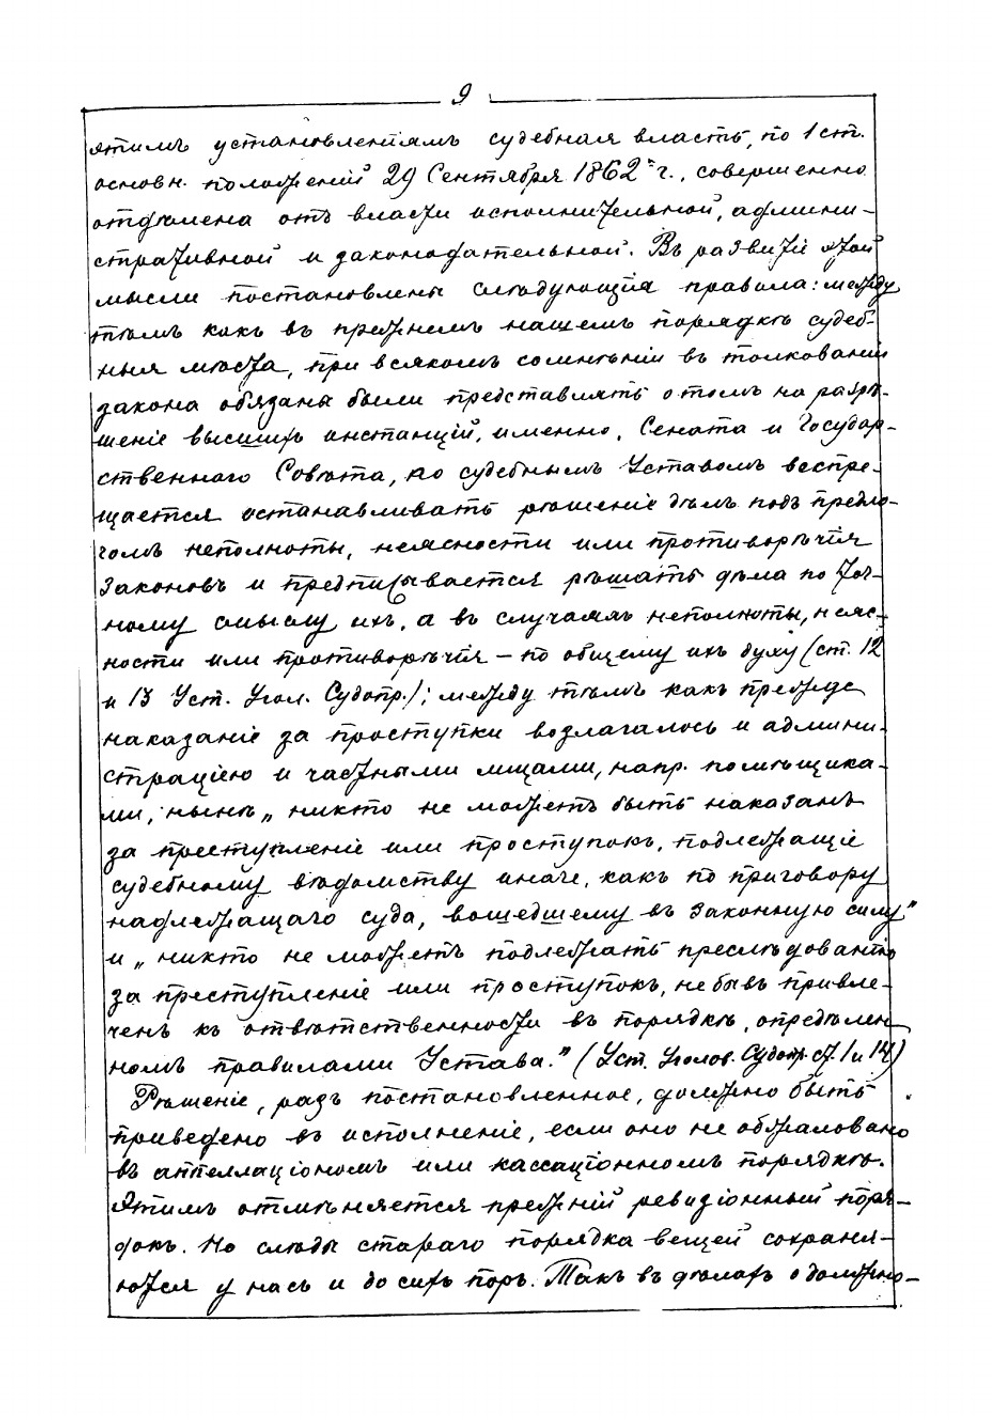 9
этимъ установленіямъ судебная власть, по 1 ст.
основн. положеній 29 Сентября 1862 г., совершенно
отдѣлена отъ власти исполнительной, админи-
стративной и законодательной. Въ развитіе этой
мысли постановлены слѣдующія правила: между
тѣмъ какъ въ прежнемъ нашемъ порядкѣ судеб-
ныя мѣста, при всякомъ сомнѣніи въ толкованіи
закона обязаны были представлять о томъ на разрѣ-
шеніе высшихъ инстанцій, именно, Сената и Государ-
ственнаго Совѣта, по судебнымъ Уставомъ воспре-
щается останавливать рѣшеніе дѣлъ подъ предло-
гомъ неполноты, неясности или противорѣчія
законовъ и предписывается рѣшать дѣла по точ-
ному смыслу ихъ, а въ случаяхъ неполноты, неяс-
ности или противорѣчія – по общему ихъ духу (ст. 12
и 13 Уст. Угол. Судопр.); между тѣмъ какъ прежде
наказаніе за проступки возлагалось и админи-
страціею и частными лицами, напр. помѣщика-
ми, нынѣ „никто не можетъ быть наказанъ
за преступленіе или проступокъ, подлежащіе
судебному вѣдомству иначе, какъ по приговору
надлежащаго суда, вошедшему въ законную силу"
и „никто не можетъ подлежать преслѣдованію
за преступленіе или проступокъ, не бывъ привле-
ченъ къ отвѣтственности въ порядкѣ, опредѣлен
номъ правилами Устава." (Уст. Уголов. Судопр. ст. 1 и 14)
Рѣшеніе, разъ постановленное, должно быть
приведено въ исполненіе, если оно не обжаловано
въ аппелляціономъ или кассаціонномъ порядкѣ.
Этимъ отмѣняется прежній ревизіонный поря-
докъ. Но слѣды стараго порядка вещей сохраня-
ются у насъ и до сихъ поръ. Такъ въ дѣлахъ о должно-